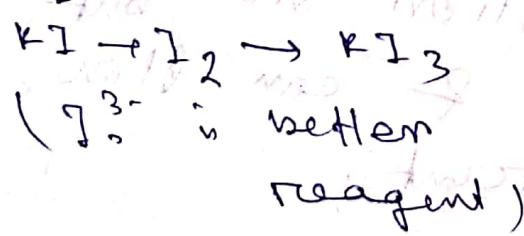 KI → I₂ → KI₃
(I³⁻ is better
reagent)